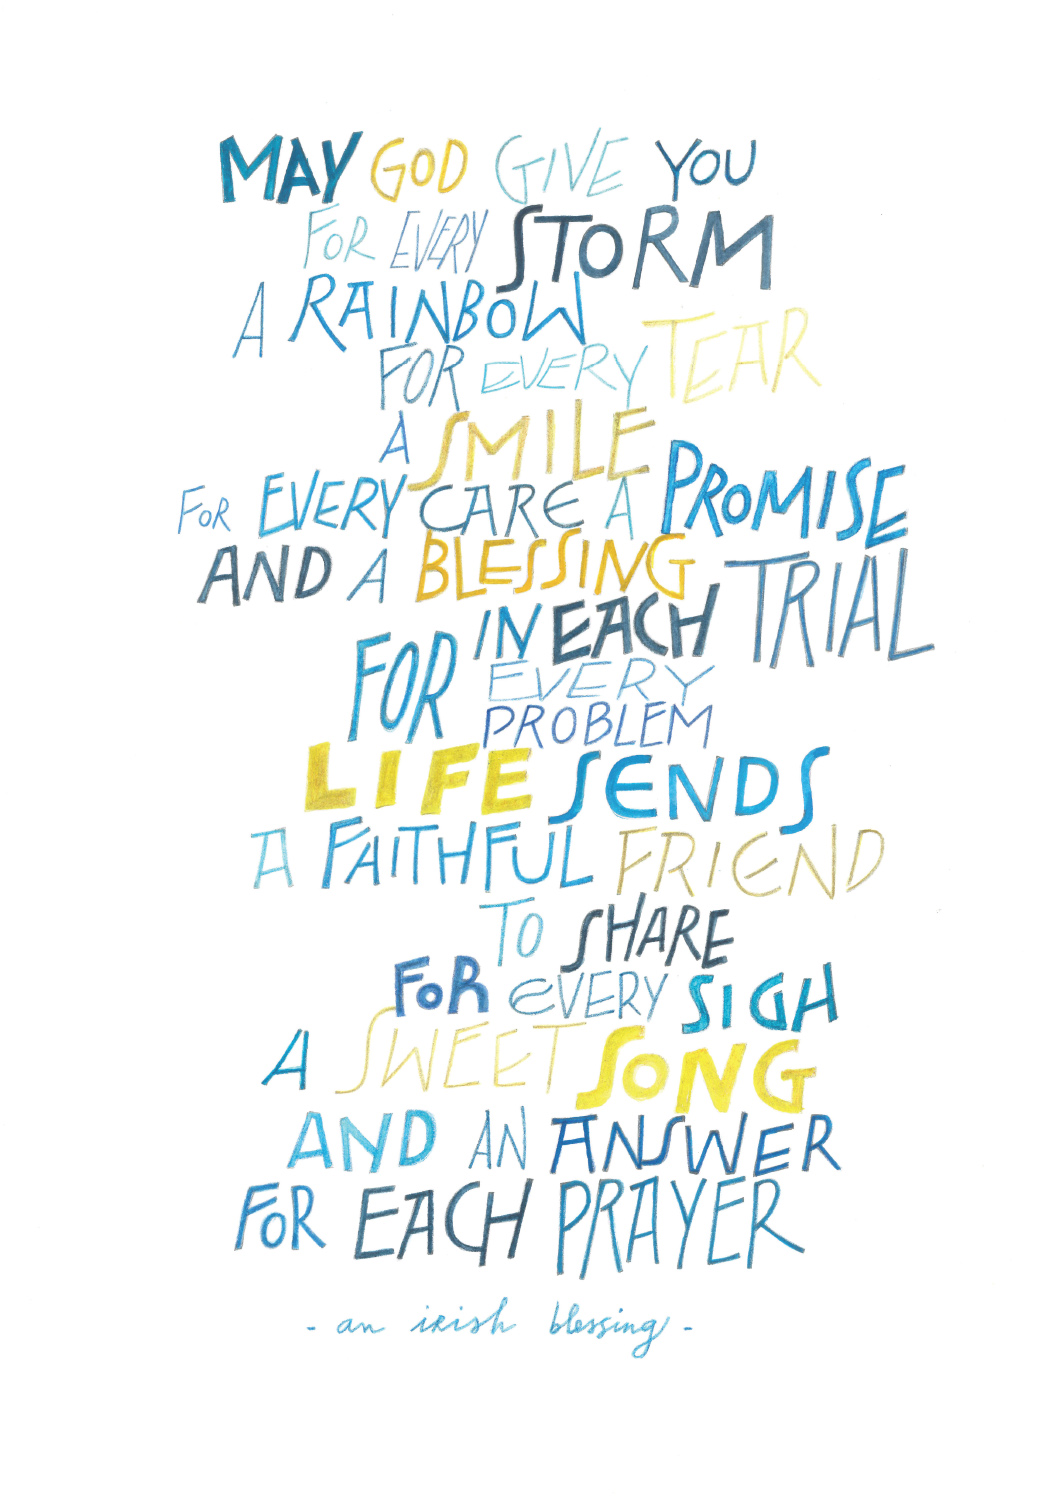 MAY GOD GIVE YOU
FOR EVERY STORM
A RAINBOW
FOR EVERY TEAR
A SMILE
FOR EVERY CARE A PROMISE
AND A BLESSING
IN EACH TRIAL
FOR EVERY
PROBLEM
LIFE SENDS
A FAITHFUL FRIEND
TO SHARE
FOR EVERY SIGH
A SWEET SONG
AND AN ANSWER
FOR EACH PRAYER
- an irish blessing -